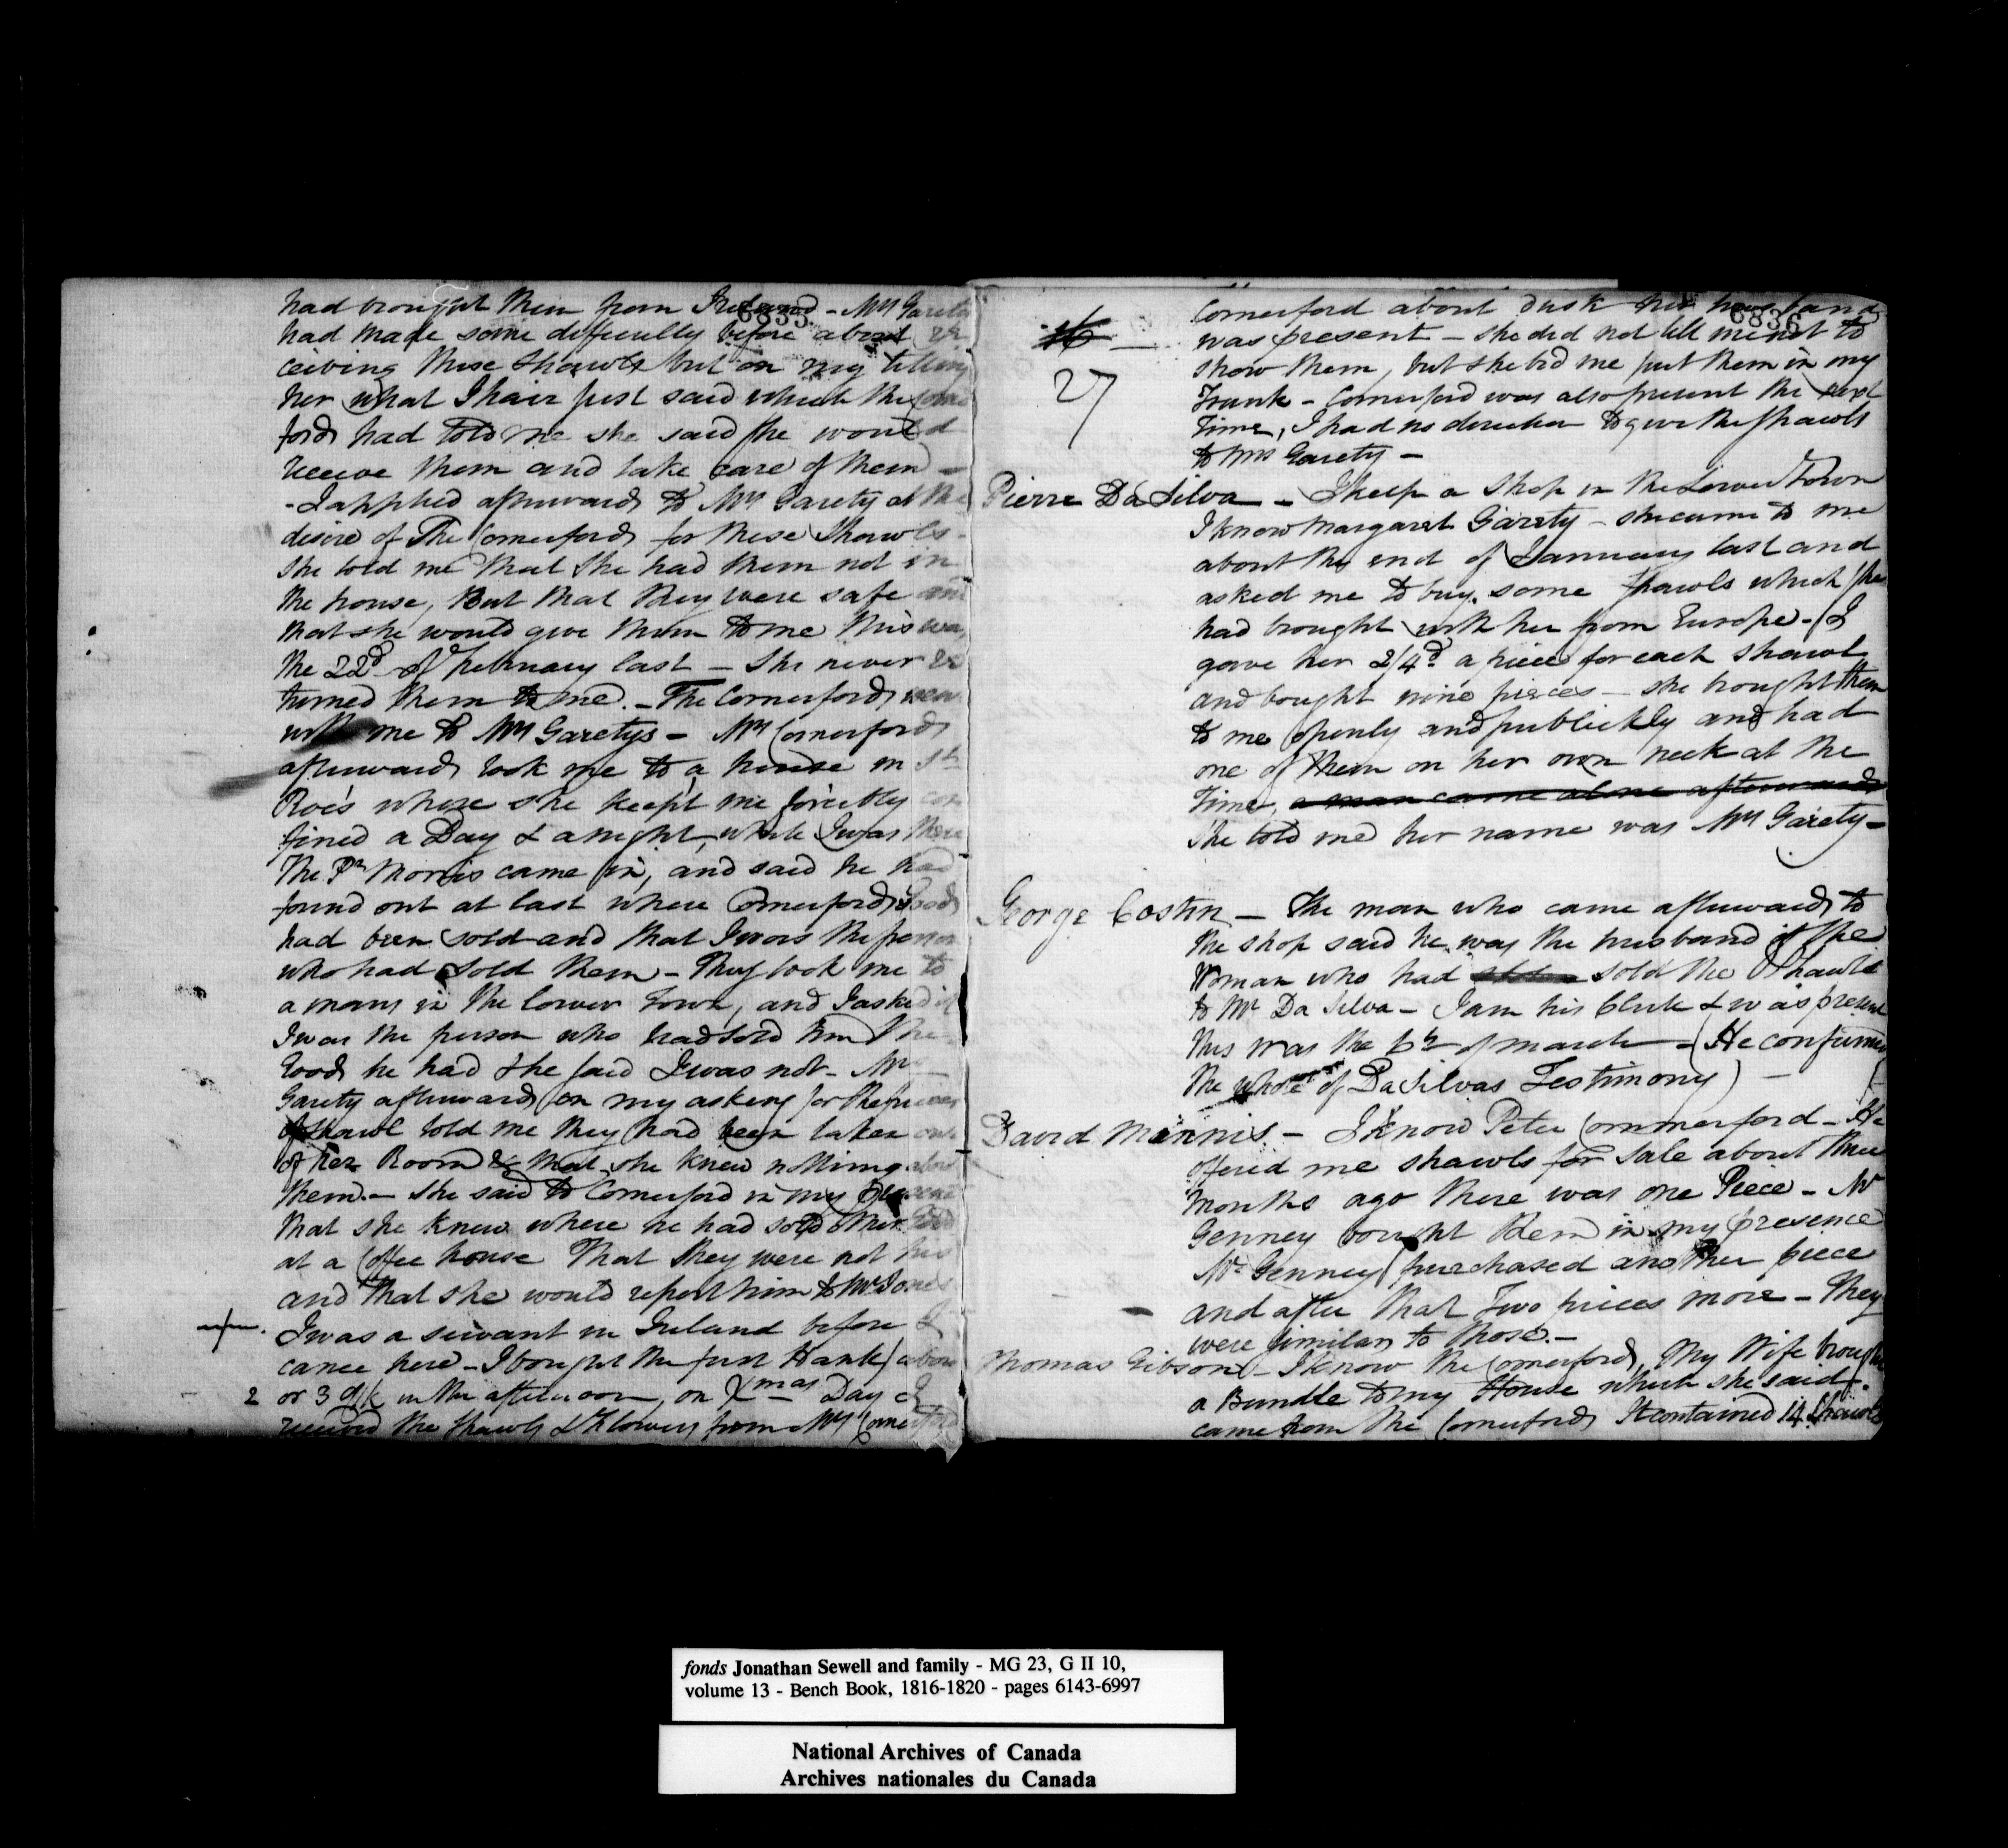 6835
had brought them from Ireland - Mrs Garety
had made some difficulty before about re
ceiving these Shawls but on my telling
her what I have just said which the Comer
fords had told me she said she would
receive them and take care of them -
- I applied afterwards to Mrs Garety at the
desire of The Comerfords for these Shawls -
She told me that she had them not in
the house, But that they were safe and
that she would give them to me this was
the 22d of February last - She never re
turned them to me. - The Comerfords
with me to Mrs Garetys - Mrs Comerfords
afterwards took me to a house in St
Roc's where she kept me forcibly con
fined a Day & a night, while I was there
The Pr Morris came in, and said he had
found out at last where Comerfords Goods
had been sold and that I was the person
who had sold them - They took me to
a mans in the lower Town, and I asked if
I was the person who had sold him the
Goods he had & he said I was not - Mrs
Garety afterwards on my asking for the pieces
of Shawl told me they had been taken out
of her Room & that she knew nothing about
them. - She said to Comerford in my presence
that she knew where he had sold
at a Coffee house That they were not his
and that she would report him to Mr Jones
I was a servant in Ireland before I
came here - I bought the first Hank about
2 or 3 o/k in the afternoon, on Xmas Day I
received the Shawls & Flowers from Mrs Comerford
6836
Comerford about dusk her husband
16 was present - she did not tell me not to
27 show them, but she bid me put them in my
Trunk - Comerford was also present the next
Time, I had no direction to give the Shawls
to Mrs Garety -
Pierre Da Silva - I keep a Shop in the Lower Town
I know Margaret Garety - she came to me
about the end of January last and
asked me to buy some shawls which she
had brought with her from Europe - I
gave her 2/4d a piece for each shawl
and bought nine pieces - she brought them
to me openly and publickly and had
one of them on her own neck at the
Time, a man came alone afterwards
She told me her name was Mrs Garety -
George Costin - The man who came afterwards to
the shop said he was the husband of the
Woman who had sold the Shawls
to Mr Da Silva - I am his Clerk & was present
this was the 6th of March - (He confirmed
the whole of Da Silvas Testimony) -
David Minnis. - I know Peter Commerford - He
offered me shawls for Sale about three
months ago there was one Piece - Mr
Genney bought them in my presence
Mr Genney purchased another piece
and after that Two pieces more - They
were similar to those. -
Thomas Gibson - I know the Comerfords, My Wife brought
a Bundle to my House which she said
came from the Comerfords It contained 14 Shawls
fonds Jonathan Sewell and family - MG 23, G II 10,
volume 13 - Bench Book, 1816-1820 - pages 6143-6997
National Archives of Canada
Archives nationales du Canada